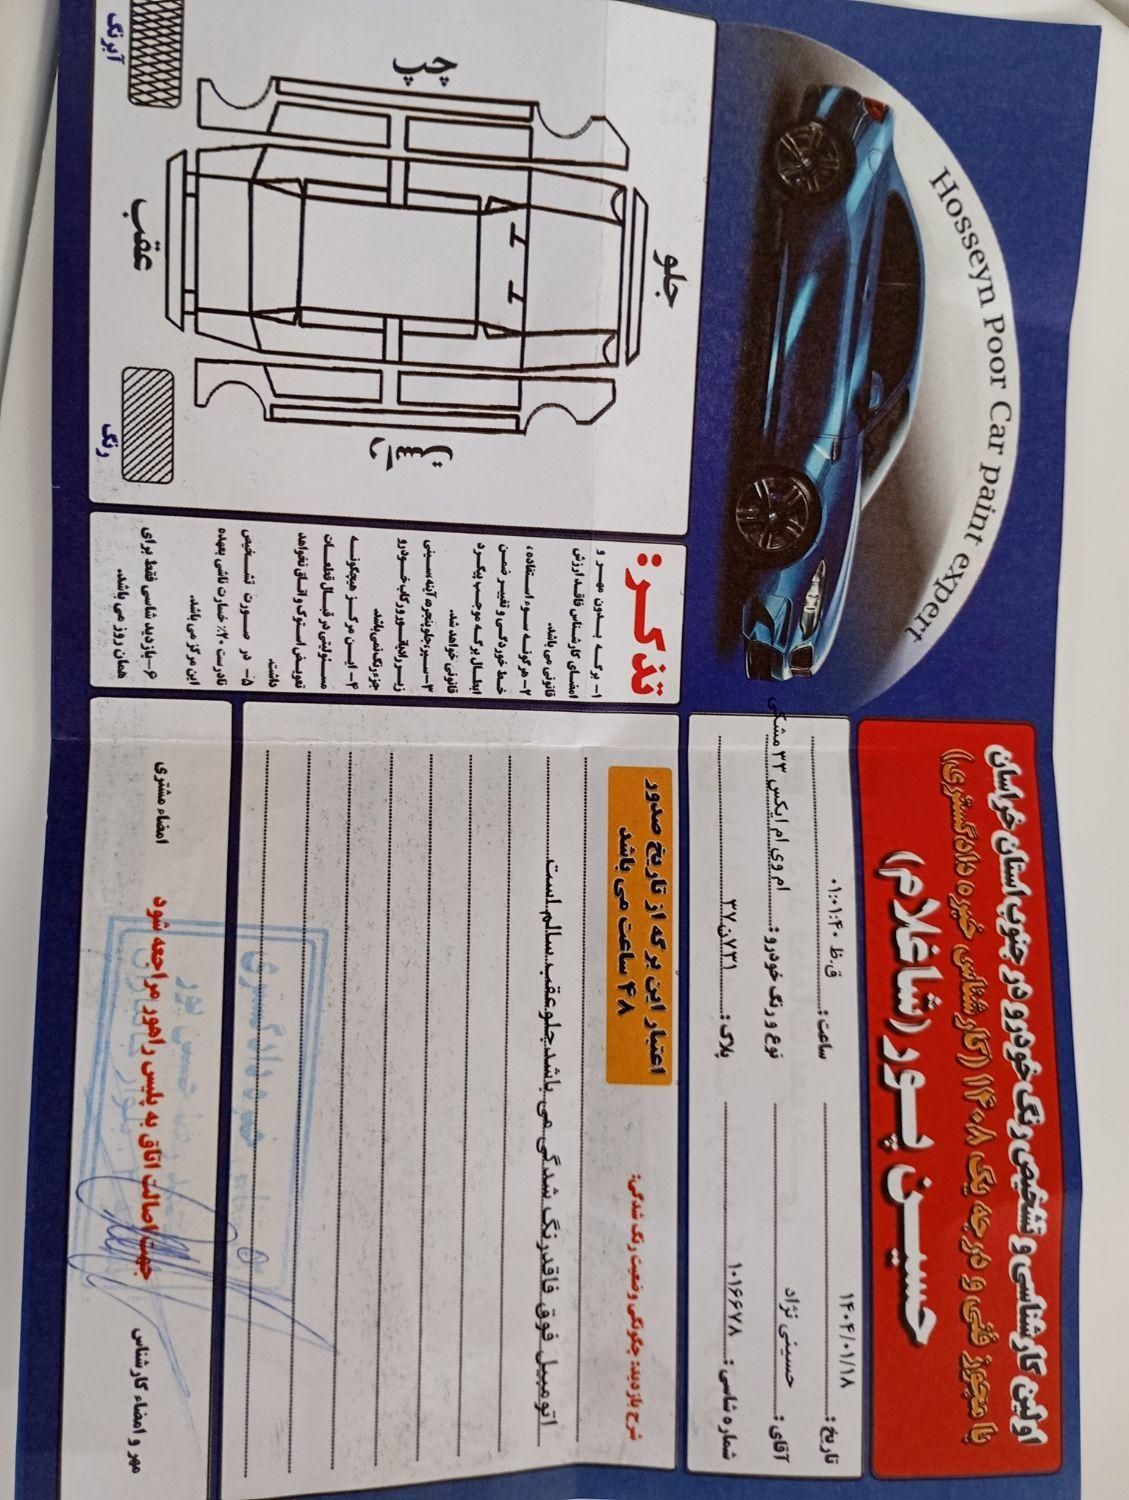 Hosseyn Poor Car paint expert
اولین کارشناسی و تشخیص رنگ خودرو در جنوب استان خراسان
با مجوز فنی و درجه یک ۱۴۰۸ (کارشناس خبره دادگستری)
حسین پور (شاغلام)
تاریخ: ۱۴۰۴/۰۱/۱۸ ساعت: ۰۱:۰۱:۴۰ ق.ظ
آقای: حسینی نژاد نوع و رنگ خودرو: ام وی ام ایکس ۳۳ مشکی
شماره شاسی: ۱۰۱۶۶۷۸ پلاک: ۷۳۱ن۲۷
شرح بازدید: چگونگی وضعیت رنگ شدگی:
اعتبار این برگه از تاریخ صدور
۴۸ ساعت می باشد
اتومبیل فوق فاقد رنگ شدگی می باشد جلو عقب سالم است
مهر و امضاء کارشناس
جهت اصالت اتاق به پلیس راهور مراجعه شود
امضاء مشتری
جلو
چپ
راست
عقب
رنگ
آبرنگ
تذکر:
۱- برگه بدون مهر و
امضای کارشناس فاقد ارزش
قانونی می باشد.
۲- هرگونه سوء استفاده،
خط خوردگی و تغییر ضمن
ابطال برگه موجب پیگرد
قانونی خواهد شد.
۳- سپر، جلو پنجره، آینه، سینی
زیر رادیاتور و رکاب خودرو
جزء رنگ نمی باشد.
۴- این مرکز هیچگونه
مسئولیتی در قبال قطعات
تعویض استوک و اتاق نخواهد
داشت.
۵- در صورت تشخیص
نادرست ۲٪ خسارت ناشی بعهده
این مرکز می باشد.
۶- بازدید شاسی فقط برای
همان روز می باشد.